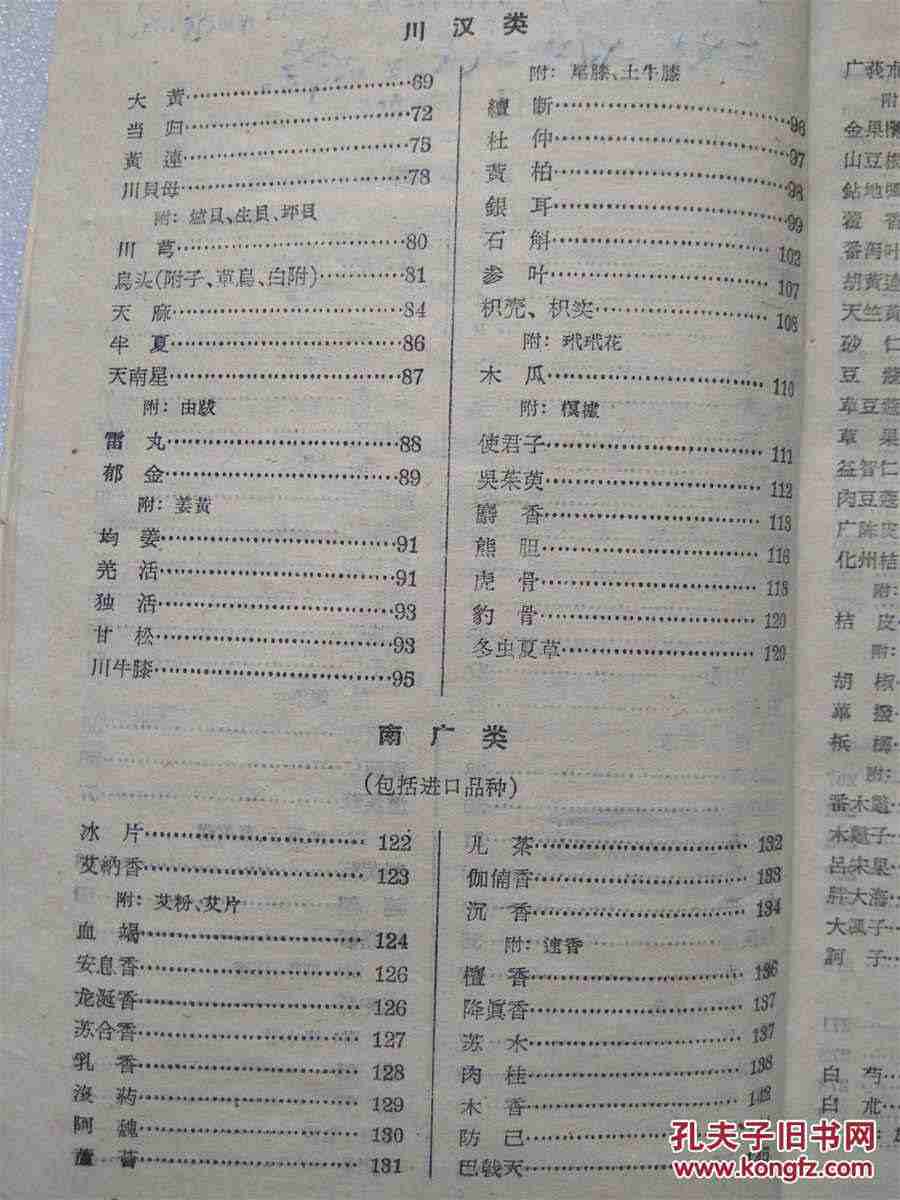 川汉类
大 黄 69
当 归 72
黄 連 75
川貝母 78
附: 爐貝、生貝、坪貝
川 芎 80
烏头(附子、草烏、白附) 81
天 麻 84
半 夏 86
天南星 87
附: 由跋
雷 丸 88
郁 金 89
附: 姜黄
均 姜 91
羌 活 91
独 活 93
甘 松 93
川牛膝 95
附: 尾膝、土牛膝
續 断 96
杜 仲 97
黄 柏 98
銀 耳 99
石 斛 102
参 叶 107
枳壳、枳实 108
附: 玳玳花
木 瓜 110
附: 榠樝
使君子 111
吳茱萸 112
麝 香 113
熊 胆 116
虎 骨 118
豹 骨 120
冬虫夏草 120
南广类
(包括进口品种)
冰 片 122
艾納香 123
附: 艾粉、艾片
血 竭 124
安息香 126
龙涎香 126
苏合香 127
乳 香 128
沒 葯 129
阿 魏 130
蘆 薈 131
儿 茶 132
伽倻香 133
沉 香 134
附: 速香
檀 香 136
降眞香 137
苏 木 137
肉 桂 138
木 香 142
防 己
巴戟天
广莪朮
附
金果欖
山豆根
鉆地
藿 香
番泻叶
胡黄连
天竺黄
砂 仁
豆 蔻
草豆蔻
草 果
益智仁
肉豆蔻
广陈皮
化州桔
附:
桔 皮
附:
胡 椒
蓽 撥
槟 榔
附:
番木鼈
木鼈子
呂宋果
胖大海
大楓子
訶 子
白 芍
白 朮
孔夫子旧书网
www.kongfz.com